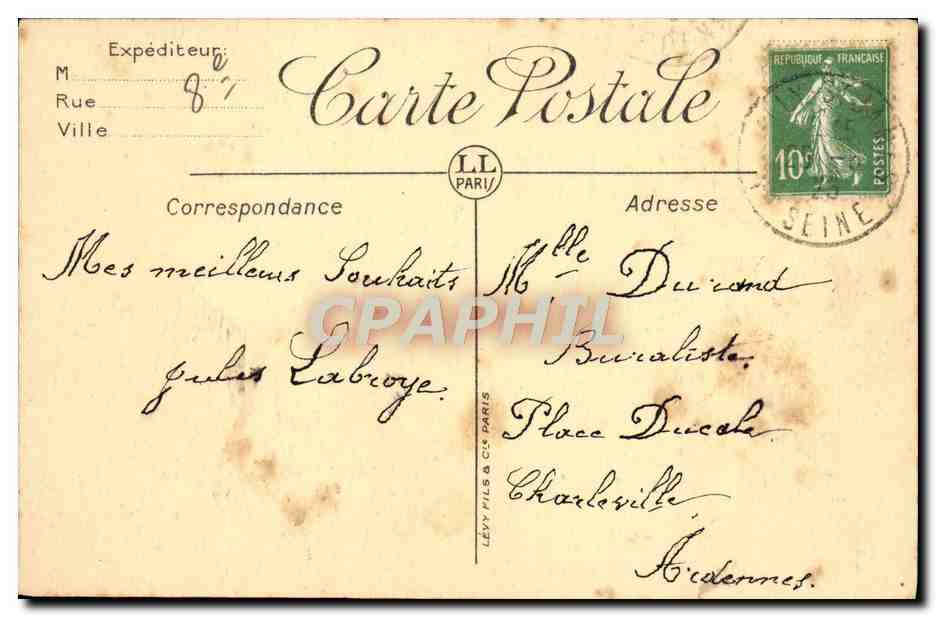 Expéditeur:
M
Rue
Ville
8e
Carte Postale
RÉPUBLIQUE FRANÇAISE
10c
POSTES
SEINE
LL
PARIS
Correspondance
Adresse
Mes meilleurs Souhaits
Jules Labroye.
Mlle Durand
Buraliste
Place Ducale
Charleville
Ardennes.
LÉVY FILS & Cie PARIS
CPAPHIL